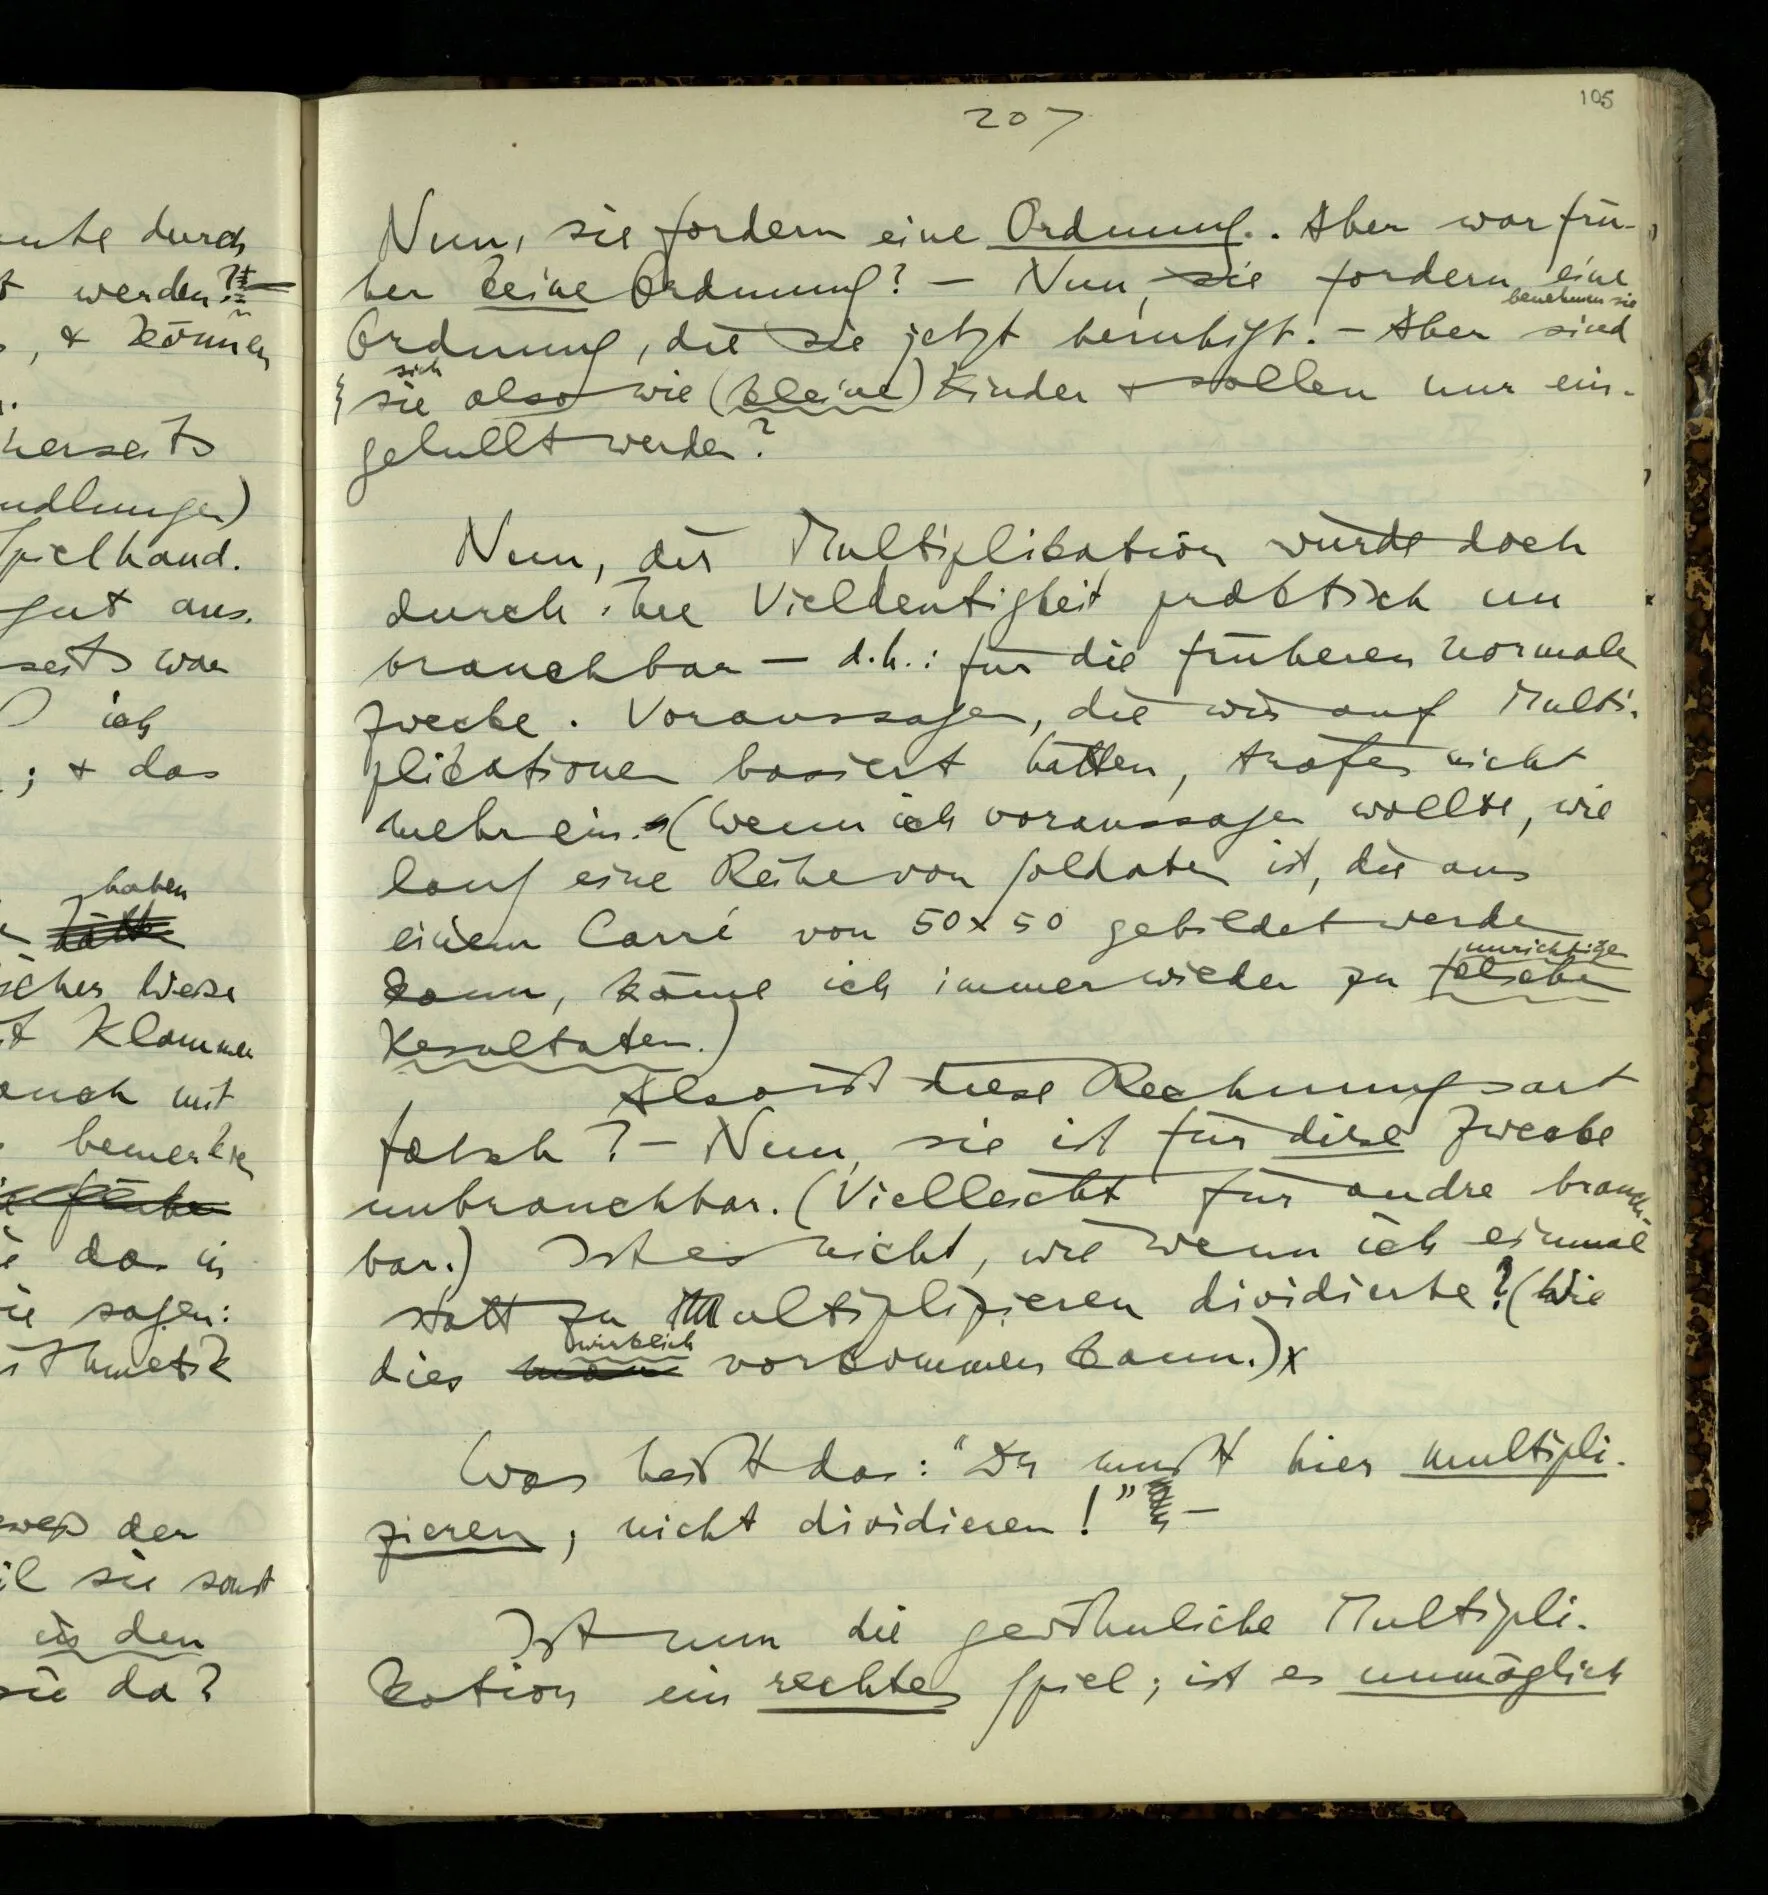 ente durch
t werden?
, & können
nerseits
ndlungen)
Spielhand-
gut aus.
seits war
ich
; & das
haben
hätte
scher Weise
t Klammer
auch mit
bemerken
da in
ie sagen:
ithmetik
der
il sie sonst
in den
sie da?
105
207
Nun, sie fordern eine Ordnung. Aber war frü-
her keine Ordnung? – Nun, sie fordern eine
benehmen sie
Ordnung, die sie jetzt beruhigt. – Aber sind
sich
sie also wie (kleine) Kinder & sollen nur ein-
gelullt werden?
Nun, die Multiplikation würde doch
durch ihre Vieldeutigkeit praktisch un
brauchbar – d.h.: für die früheren normalen
Zwecke. Voraussagen, die wir auf Multi-
plikationen basiert hätten, träfen nicht
mehr ein. (Wenn ich voraussagen wollte, wie
lang eine Reihe von Soldaten ist, die aus
einem Carré von 50x50 gebildet werden
unrichtigen
kann, käme ich immer wieder zu falschen
Resultaten.)
Also ist diese Rechnungsart
falsch? – Nun, sie ist für diese Zwecke
unbrauchbar. (Vielleicht für andre brauch-
bar.) Ist es nicht, wie wenn ich einmal
statt zu multiplizieren dividierte? (Wie
wirklich
dies vorkommen kann.)x
Was heißt das: "Du mußt hier multipli-
zieren, nicht dividieren!" –
Ist nun die gewöhnliche Multipli-
kation ein rechtes Spiel; ist es unmöglich